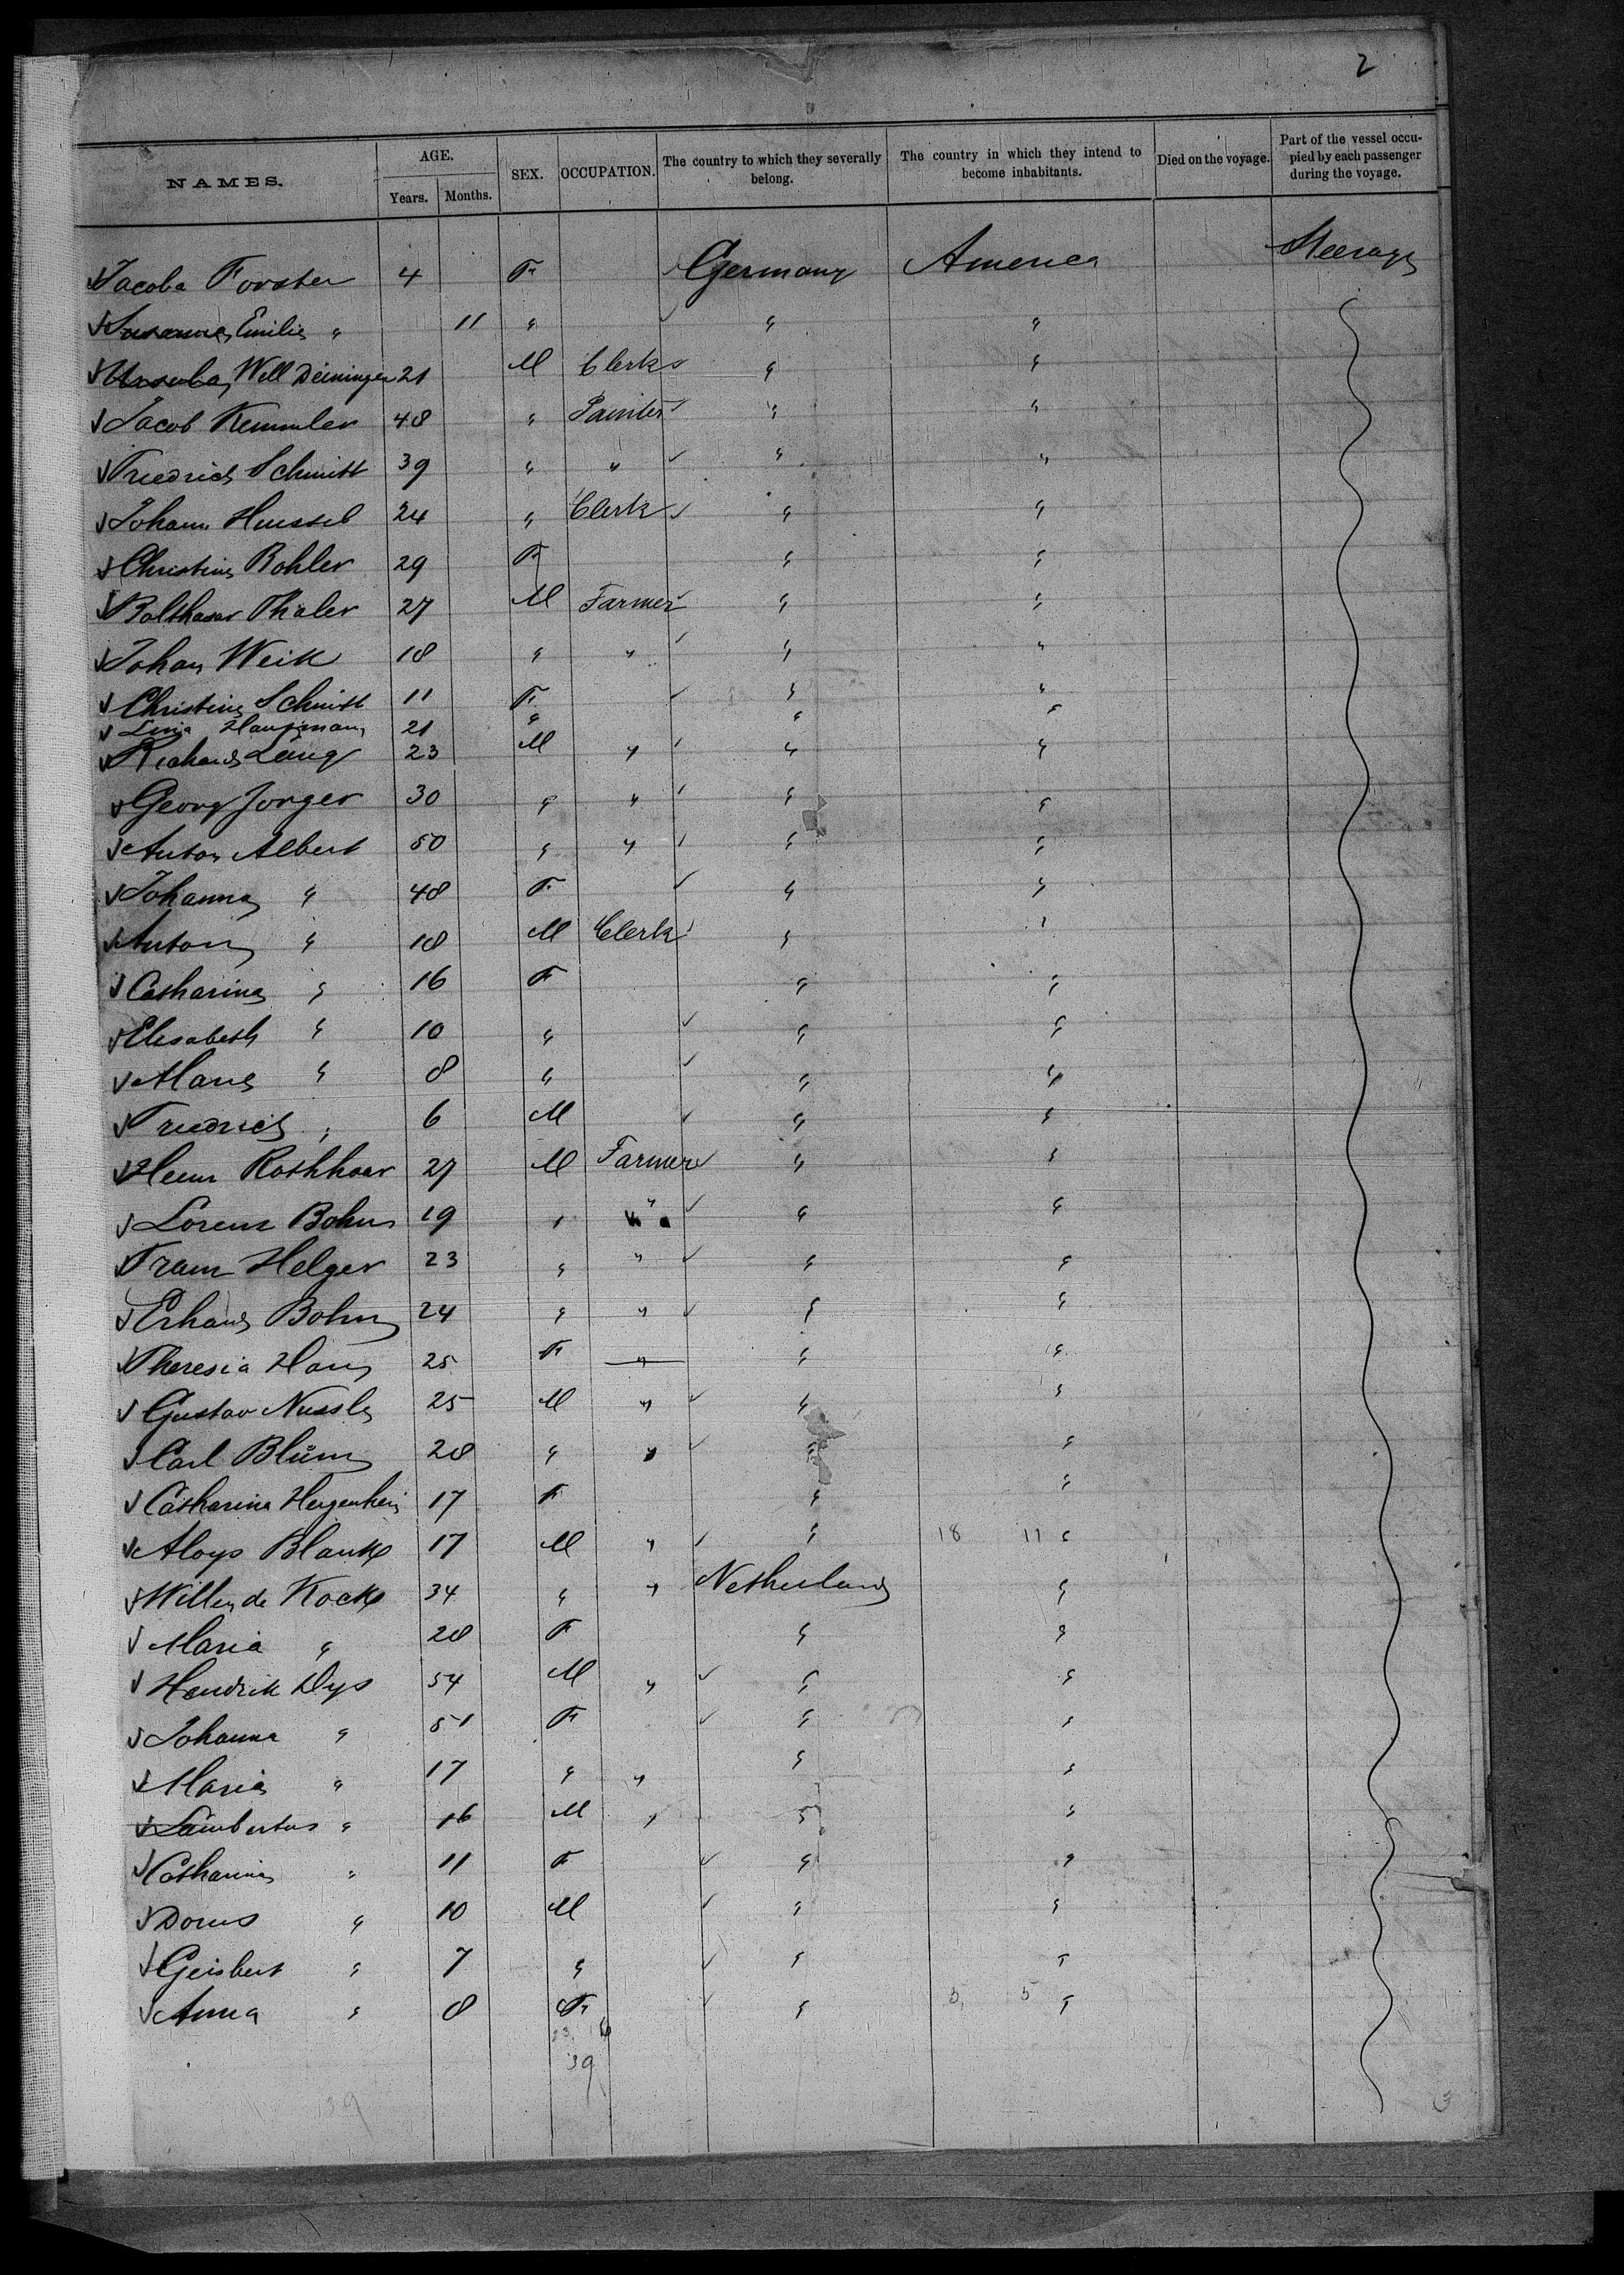 2
NAMES. AGE. Years. Months. SEX. OCCUPATION. The country to which they severally belong. The country in which they intend to become inhabitants. Died on the voyage. Part of the vessel occupied by each passenger during the voyage.
Jacoba Forster 4 F. Germany America Steerage
Susanna Emilie " 11 " " "
Well Deininger 21 M Clerk " "
Jacob Kemmler 48 " Painter " "
Friedrich Schmitt 39 " " " "
Johann 24 " Clerk " "
Christine Bohler 29 F. " "
Balthasar Thaler 27 M Farmer " "
Johan Weik 18 " " " "
Christine Schmitt 11 F. " "
21 " " "
Richard Lang 23 M " " "
Georg Jorger 30 " " " "
Anton Albert 50 " " " "
Johanna " 48 F. " "
Anton " 18 M Clerk " "
Catharina " 16 F " "
Elisabeth " 10 " " "
Marie " 8 " " "
Friedrich " 6 M " "
Heinr Rothhaar 27 M Farmer " "
Lorenz Bohn 19 " " " "
Franz Helger 23 " " " "
Erhard Bohn 24 " " " "
Theresia 25 F " " "
Gustav Nussle 25 M " " "
Carl Blum 28 " " " "
Catharina 17 F " "
Aloys Blank 17 M " " 18 11 "
Willem de Kock 34 " " Netherland "
Maria " 28 F " "
Hendrik Dys 54 M " " "
Johanna " 51 F " "
Maria " 17 " " " "
Lambertus " 16 M " " "
Catharina " 11 F " "
Dorus " 10 M " "
Geisbert " 7 " " "
Anna " 8 F. " 5 5 "
23 16
39
39
3